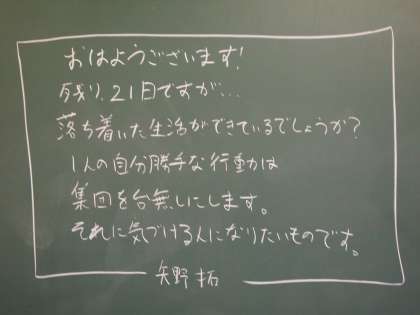 おはようございます!
残り、21日ですが…
落ち着いた生活ができているでしょうか?
1人の自分勝手な行動は
集団を台無しにします。
それに気づける人になりたいものです。
矢野 拓